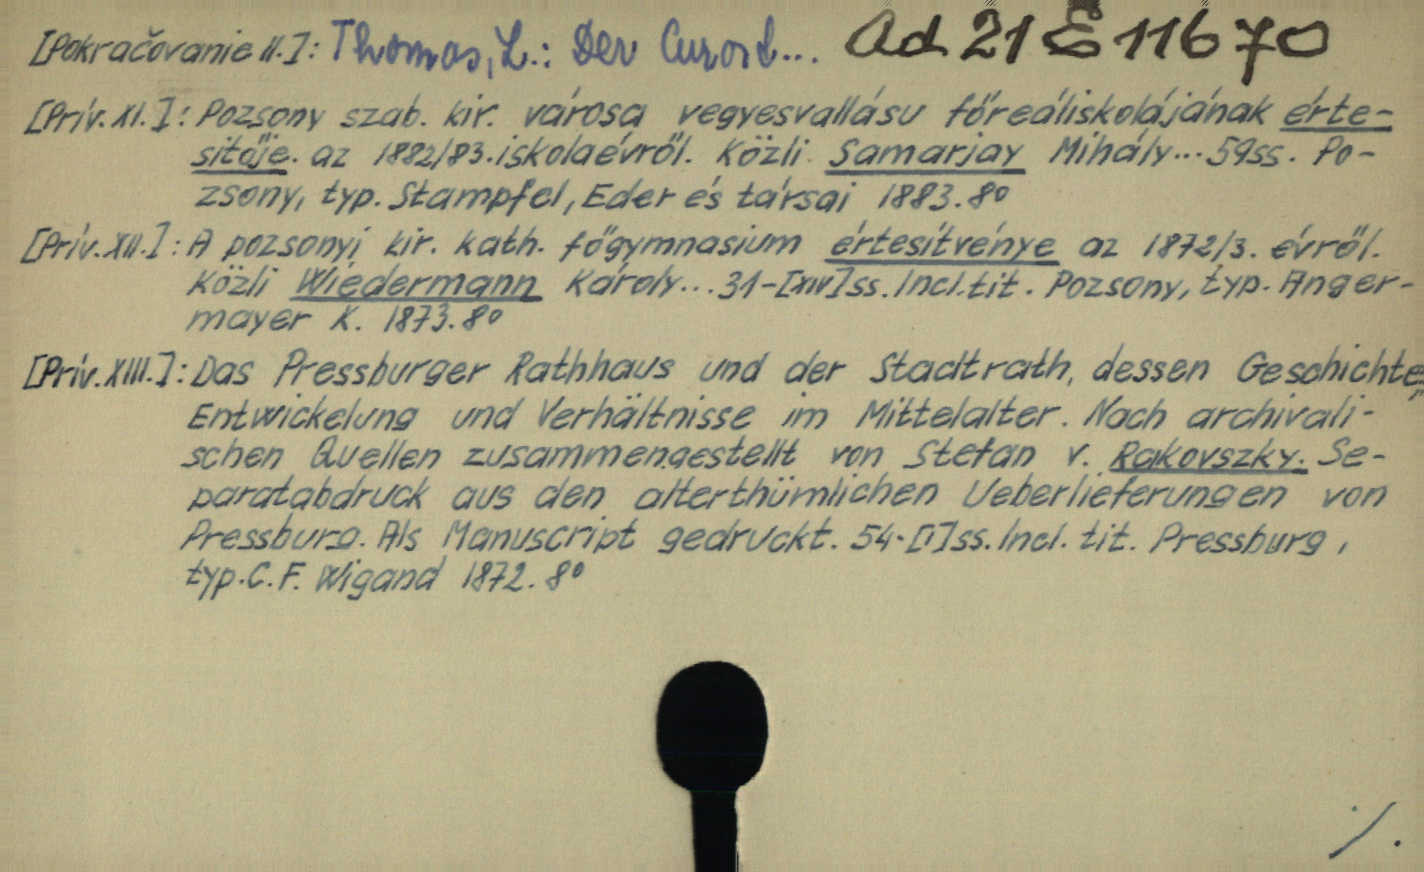 [Pokračovanie II.]: Thomas, L.: Der Curort... Ad 21 E 11670
[Prív. XI.]: Pozsony szab. kir. városa vegyesvallásu főreáliskolájának érte-
sitője. az 1882/83. iskolaévről. Közli Samarjay Mihály... 59ss. Po-
zsony, typ. Stampfel, Eder és társai 1883. 8°
[Prív. XII.]: A pozsonyi kir. kath. főgymnasium értesítvénye az 1872/3. évről.
Közli Wiedermann Károly... 31-[XIV]ss. Incl. tit. Pozsony, typ. Anger-
mayer K. 1873. 8°
[Prív. XIII.]: Das Pressburger Rathhaus und der Stadtrath, dessen Geschichte,
Entwickelung und Verhältnisse im Mittelalter. Nach archivali-
schen Quellen zusammengestellt von Stefan v. Rakovszky. Se-
paratabdruck aus den alterthümlichen Ueberlieferungen von
Pressburg. Als Manuscript gedruckt. 54-[1]ss. Incl. tit. Pressburg,
typ. C. F. Wigand 1872. 8°
./.